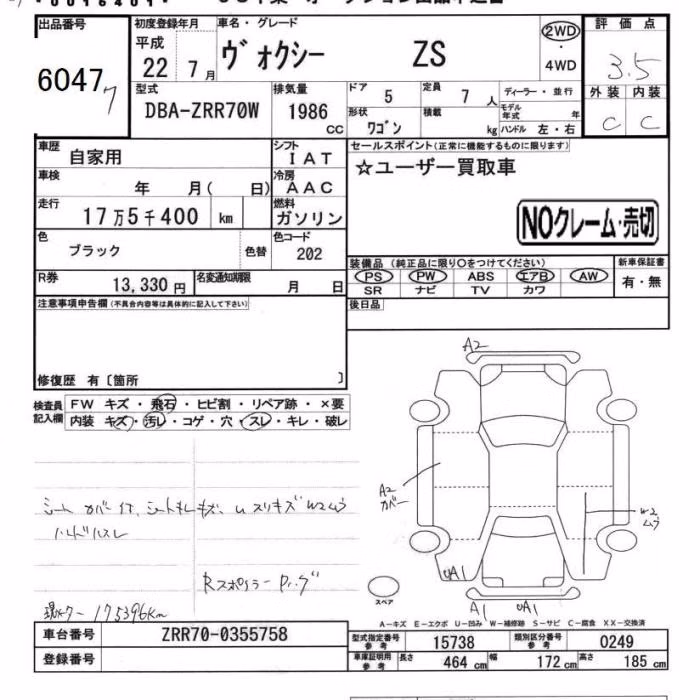 出品番号
6047
7
初度登録年月
平成
22 7月
車名・グレード
ヴォクシー ZS
2WD
・
4WD
評価点
3.5
外装 内装
C C
型式
DBA-ZRR70W
排気量
1986 CC
ドア 5
定員 7人
ディーラー・並行
形状
ワゴン
積載 kg
モデル年式 年
ハンドル 左・右
車歴 自家用
シフト IAT
車検 年 月( 日)
冷房 AAC
走行 17万5千400 km
燃料 ガソリン
色 ブラック 色替
色コード 202
R券 13,330円
名変通知期限 月 日
セールスポイント(正常に機能するものに限ります)
☆ユーザー買取車
NOクレーム・売切
装備品(純正品に限り○をつけてください)
PS PW ABS エアB AW
SR ナビ TV カワ
新車保証書
有・無
後日品
注意事項申告欄(不具合内容等は具体的に記入して下さい)
修復歴 有〔箇所 〕
検査員記入欄
FW キズ・飛石・ヒビ割・リペア跡・×要
内装 キズ・汚レ・コゲ・穴・スレ・キレ・破レ
シート カバー付、シートモレキズ、
スリキズ W2ムラ
ハンドルスレ
Rスポイラー
175396km
A2
A2
カバー
W2
ムラ
UA1
A1 UA1
スペア
A-キズ E-エクボ U-凹み W-補修跡 S-サビ C-腐食 XX-交換済
車台番号 ZRR70-0355758
登録番号
型式指定番号 参考 15738
類別区分番号 参考 0249
車庫証明用 参考 長さ 464cm 幅 172cm 高さ 185cm